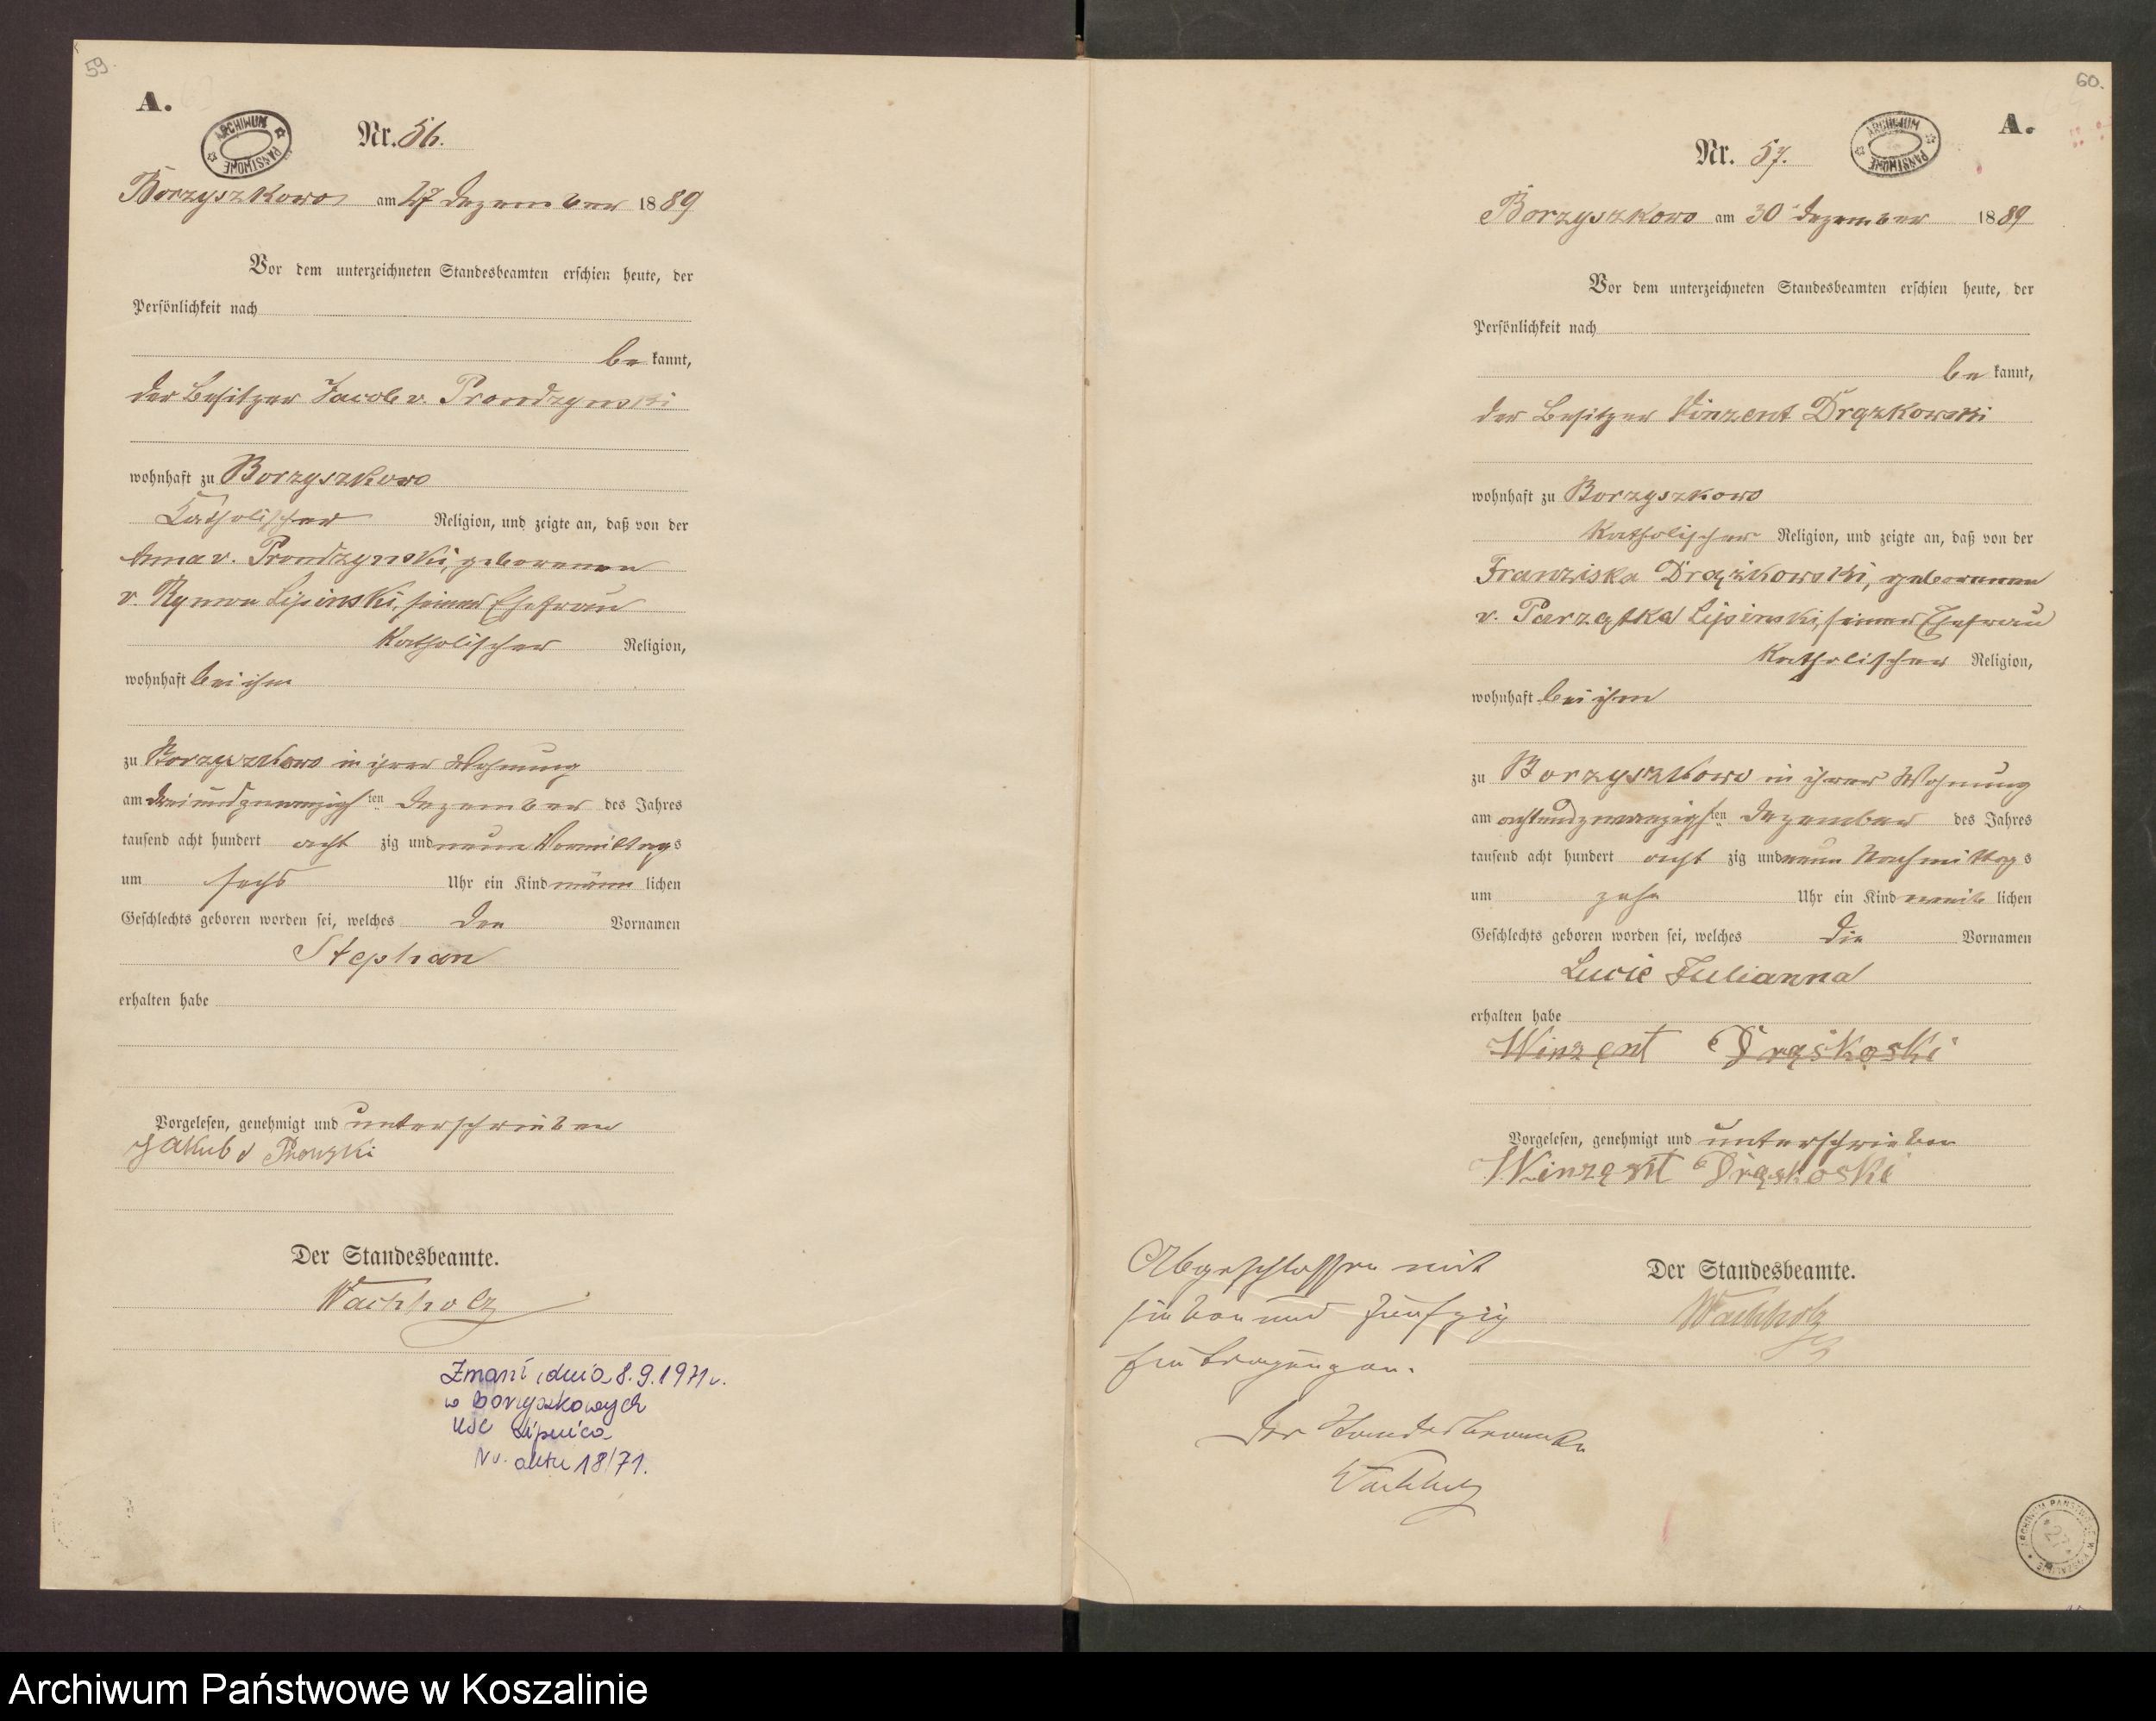 59.
A.
ARCHIWUM PAŃSTWOWE
Nr. 56.
Borzyszkowo am 27 Dezember 1889
Vor dem unterzeichneten Standesbeamten erschien heute, der
Persönlichkeit nach
be kannt,
der Besitzer Jacob v. Prondzynski
wohnhaft zu Borzyszkowo
katholischer Religion, und zeigte an, daß von der
Anna v. Prondzynski, geborenen
v. Rymon Lipinski, seiner Ehefrau
katholischer Religion,
wohnhaft bei ihm
zu Borzyszkowo in ihrer Wohnung
am dreiundzwanzigsten Dezember des Jahres
tausend acht hundert acht zig und neun Vormittags
um sechs Uhr ein Kind männ lichen
Geschlechts geboren worden sei, welches den Vornamen
Stephan
erhalten habe
Vorgelesen, genehmigt und unterschrieben
Jakub v
Der Standesbeamte.
Wachholz
Zmarł dnia 8.9.1971 r.
w Borzyszkowych
USC Lipnica
Nr. aktu 18/71.
60.
A.
ARCHIWUM PAŃSTWOWE
Nr. 57.
Borzyszkowo am 30 Dezember 1889
Vor dem unterzeichneten Standesbeamten erschien heute, der
Persönlichkeit nach
be kannt,
der Besitzer Vinzent Drązkowski
wohnhaft zu Borzyszkowo
katholischer Religion, und zeigte an, daß von der
Franziska Drążkowski, geborenen
v. Parzątka Lipinski, seiner Ehefrau
katholischer Religion,
wohnhaft bei ihm
zu Borzyszkowo in ihrer Wohnung
am achtundzwanzigsten Dezember des Jahres
tausend acht hundert acht zig und neun Nachmittags
um zehn Uhr ein Kind weib lichen
Geschlechts geboren worden sei, welches die Vornamen
Lucie Julianna
erhalten habe
Winzęnt Drąskoski
Vorgelesen, genehmigt und unterschrieben
Winzęnt Drąskoski
Der Standesbeamte.
Wachholz
Abgeschlossen mit
siebenund fünfzig
Eintragungen.
Der Standesbeamte
Wachholz
ARCHIWUM PAŃSTWOWE W KOSZALINIE
27
Archiwum Państwowe w Koszalinie